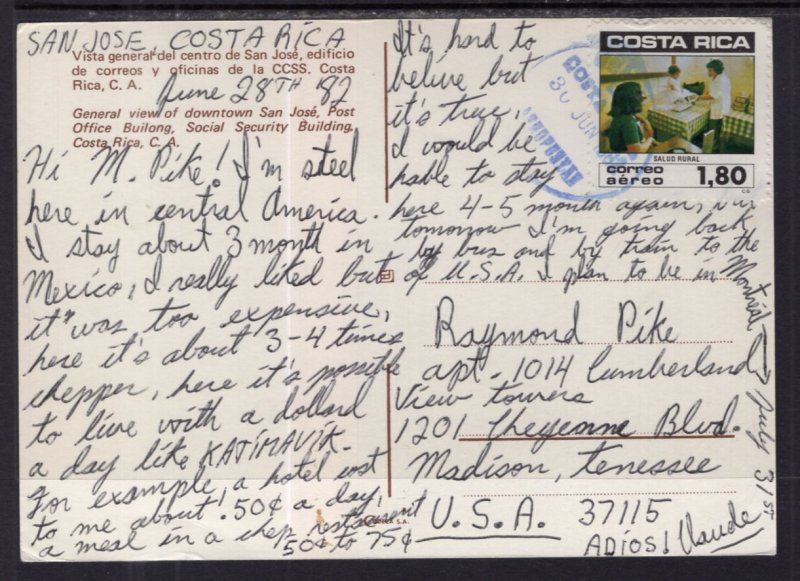 SAN JOSE, COSTA RICA
Vista general del centro de San José, edificio
de correos y oficinas de la CCSS. Costa
Rica, C. A.
June 28TH '82
General view of downtown San José, Post
Office Builong, Social Security Building,
Costa Rica, C. A.
Hi M. Pike! I'm steel
here in central America.
I stay about 3 month in
Mexico, I really liked but
it was too expensive,
here it's about 3-4 times
chepper, here it's possible
to live with a dollard
a day like KATIMAVIK.
For example a hotel cost
to me about 1.50¢ a day!
a meal in a chep restaurent
50¢ to 75¢
It's hard to
belive but
it's true,
I would be
hable to stay
here 4-5 month again, but
tomorrow I'm going back
by bus and by train to the
of U.S.A. I plan to be in Montréal
July 31st
COSTA RICA
30 JUN
SALUD RURAL
correo
aéreo
1,80
Raymond Pike
apt-1014 Cumberland
View towers
1201 Cheyenne Blvd.
Madison, Tenessee
U.S.A. 37115
ADIOS! Claude